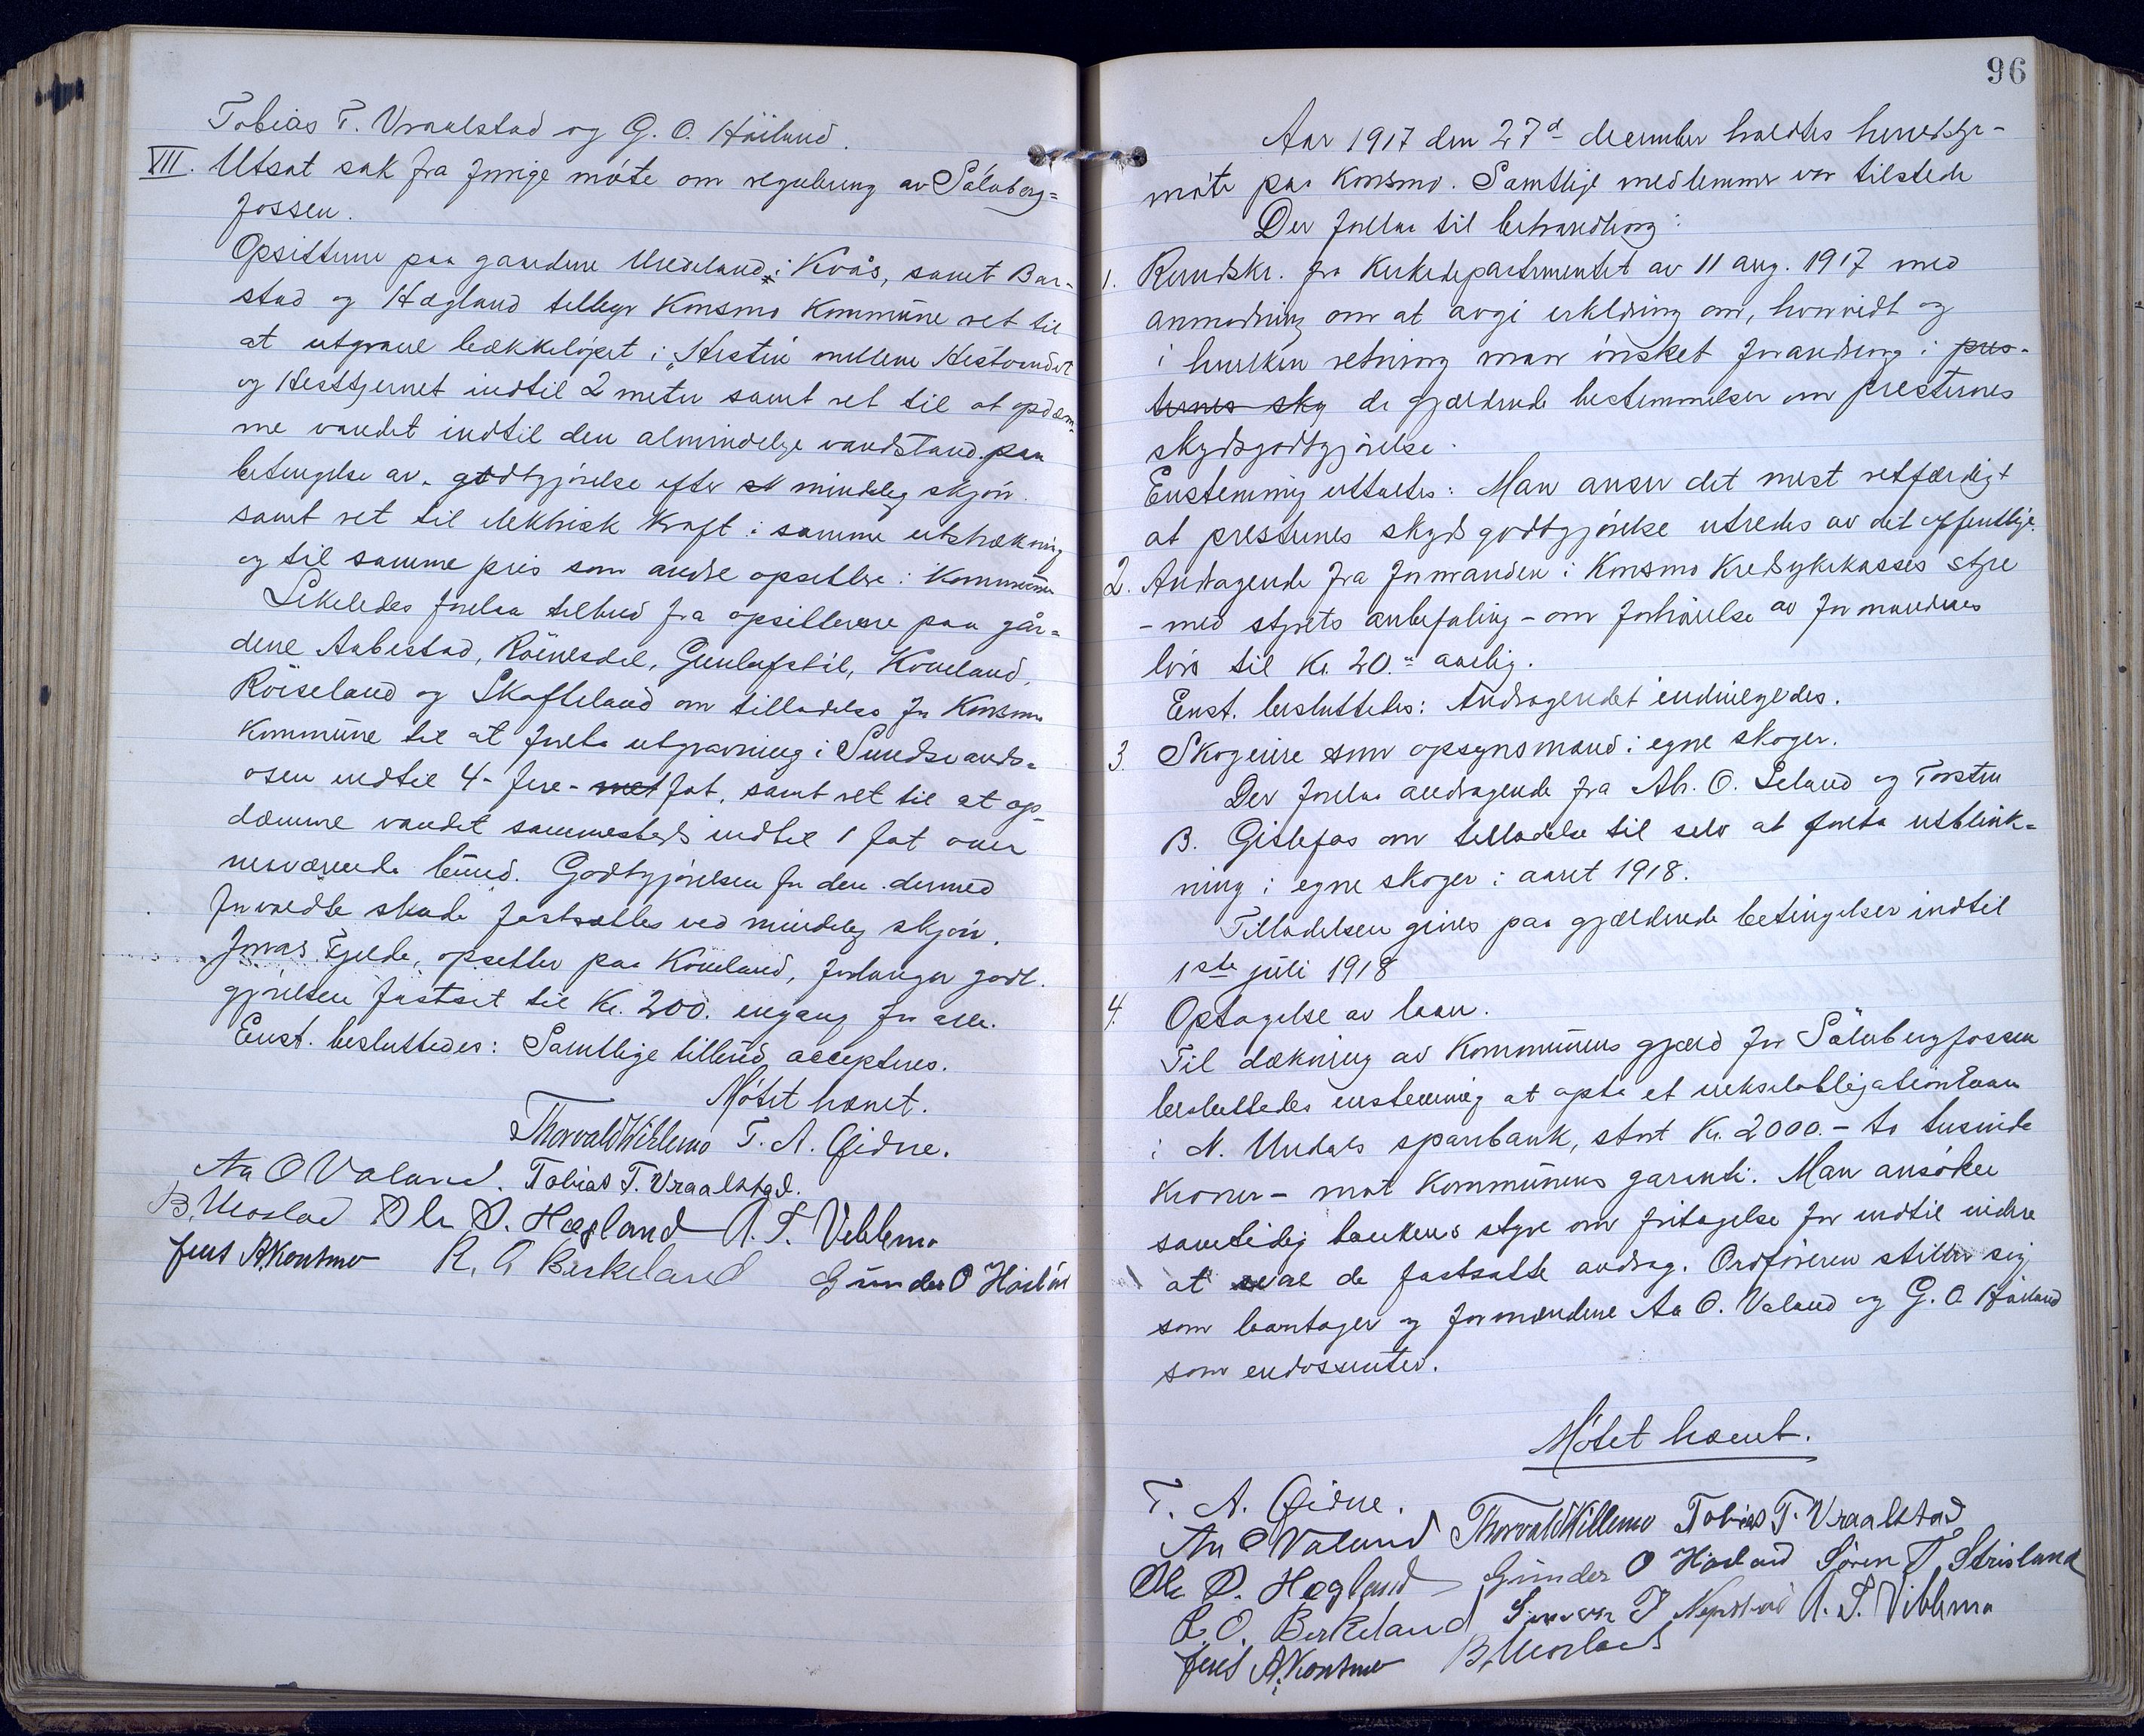 Tobias T. Vraalstad og G. O. Høiland.
VII. Utsat sak fra forrige møte om regulering av Sølvberg=
fossen.
Opsitterne paa gaardene Urdeland i Kvås, samt Bar-
stad og Hægland tillegr Konsmo Kommune ret til
at utgrave bækkeløpet i "Hestii mellem Hestvandet
og Hesttjernet indtil 2 meter samt ret til at opdæm-
me vandet indtil den almindelige vandstand paa
betingelse av godtgjørelse efter mindelig skjøn.
samt ret til elektrisk kraft i samme utstrækning
og til samme pris som andre opsittere i Kommunen
Likeledes forelaa tilbud fra opsitterne paa går=
dene Aabestad, Röinesdal, Gunlafstöl, Kouland,
Röiseland og Skofteland om tilladelse for Konsmo
Kommune til at foreta utgravning i Sundsvands=
osen indtil 4 - fire - met fot, samt ret til at op-
dæmme vandet sammesteds indtil 1 fot over
nuværende bund. Godtgjørelsen for den dermed
forvoldte skade fastsættes ved mindelig skjøn.
Jonas Fjelde, opsitter paa Kouland, forlanger godt-
gjørelsen fastsat til Kr. 200. engang for alle.
Enst. besluttedes: Samtlige tilbud accepteres.
Møtet hævet.
Thorvald Willemo T. A. Eidne.
Aa O Valand. Tobias T. Vraalstad.
B. Moslad Ole O. Hægland A. T. Vibbemo
Jens A. Konsmo R. O Birkeland Gunder O Høiland
96
Aar 1917 den 27d december holdtes herredsty-
møte paa Konsmo. Samtlige medlemmer var tilstede
Der forelaa til behandling:
1. Rundskr. fra Kirkedepartementet av 11 aug. 1917 med
anmodning om at avgi erklæring om, hvorvidt og
i hvilken retning man ønsket forandring i pres-
ternes sky de gjældende bestemmelser om presternes
skydsgodtgjørelse.
Enstemmig uttaltes: Man anser det mest retfærdigt
at presternes skydsgodtgjørelse utredes av det offentlige.
2. Andragende fra formanden i Konsmo Kredssykekasses styre
- med styrets anbefaling - om forhøielse av formandens
løn til Kr. 20.- aarlig.
Enst. besluttedes: Andragendet indvilgedes.
3. Skogeiere som opsynsmænd i egne skoger.
Der forelaa andragende fra Ab. O. Leland og Torsten
B. Gislefos om tilladelse til selv at foreta utblink=
ning i egne skoger i aaret 1918.
Tilladelsen gives paa gjældende betingelser indtil
1ste juli 1918
4. Optagelse av laan.
Til dækning av Kommunens gjæld for Sölvbergfossen
besluttedes enstemmig at opta et vekselobligationlaan
i N. Undals sparebank, stort Kr. 2000.- to tusinde
Kroner - mot Kommunens garanti. Man ansøker
samtidig bankens styre om fritagelse for indtil videre
at de fastsatte avdrag. Ordføreren stiller sig
som laantager og formændene Aa O. Valand og G. O. Høiland
som endossenter.
Møtet hævet.
T. A. Eidne.
Aa O Valand Thorvald Willemo Tobias T. Vraalstad
Ole O. Hægland Gunder O Høiland Søren T. Strisland
R. O. Birkeland T Nepstad A. T. Vibbemo
Jens A. Konsmo B. Moslad